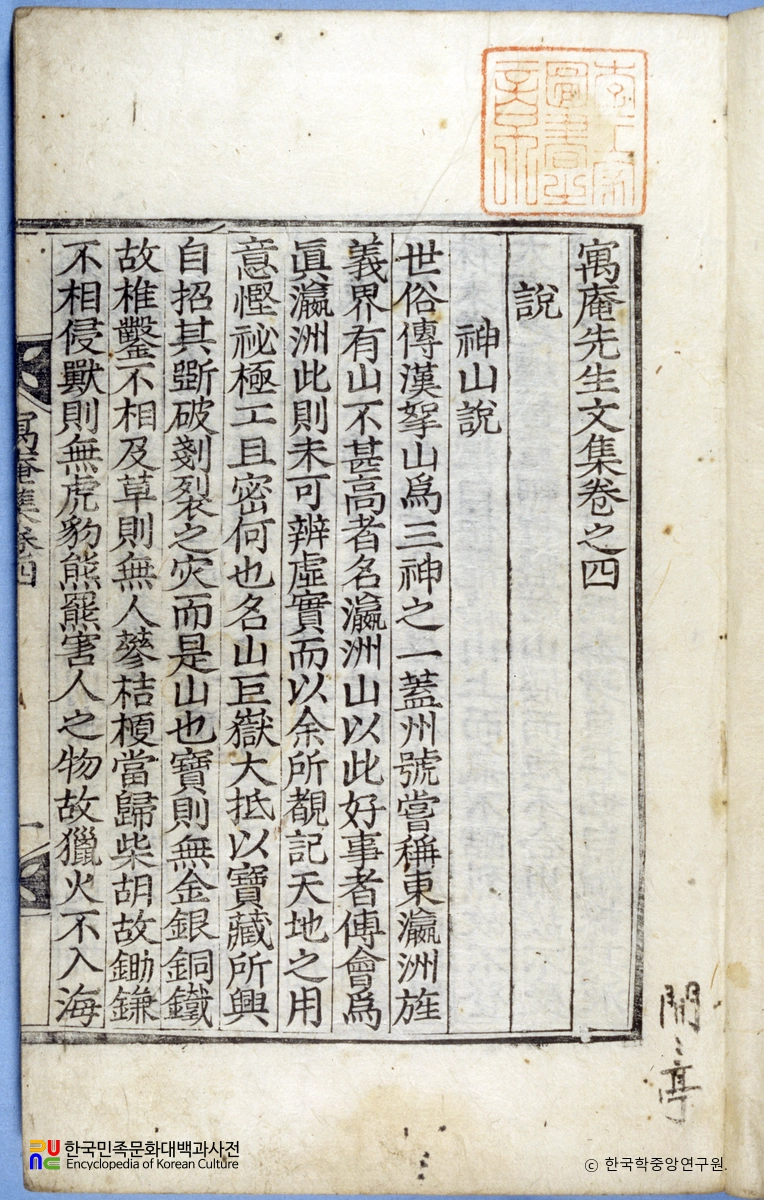 寓庵先生文集卷之四
說
神山說
世俗傳漢拏山爲三神之一蓋州號嘗稱東瀛洲旌
義界有山不甚高者名瀛洲山以此好事者傳會爲
眞瀛洲此則未可辨虛實而以余所覩記天地之用
意慳祕極工且密何也名山巨嶽大抵以寶藏所興
自招其斲破剗裂之灾而是山也寶則無金銀銅鐵
故椎鑿不相及草則無人蔘桔梗當歸柴胡故鋤鎌
不相侵獸則無虎豹熊羆害人之物故獵火不入海
寓庵集卷四
一
閒〻亭
한국민족문화대백과사전
Encyclopedia of Korean Culture
ⓒ 한국학중앙연구원.